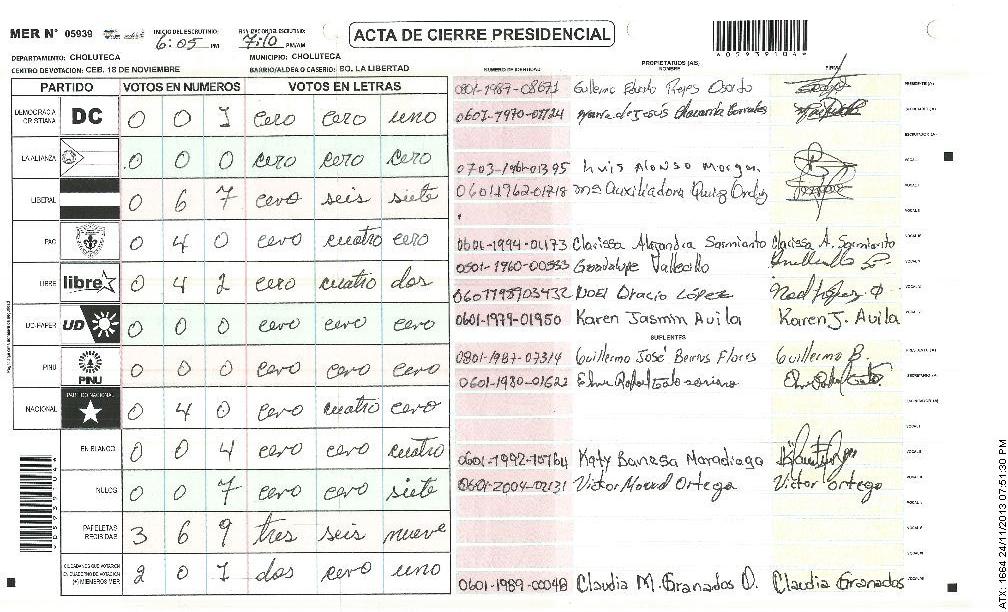 MER N° 05939 INICIO DEL ESCRUTINIO: 6:05 PM 7:10 PM/AM
ACTA DE CIERRE PRESIDENCIAL
405939104
DEPARTAMENTO: CHOLUTECA MUNICIPIO: CHOLUTECA
CENTRO DE VOTACION: CEB. 18 DE NOVIEMBRE BARRIO/ALDEA O CASERIO: BO. LA LIBERTAD
NUMERO DE IDENTIDAD PROPIETARIOS (AS) NOMBRE FIRMA
PARTIDO VOTOS EN NUMEROS VOTOS EN LETRAS
DEMOCRACIA CRISTIANA DC 0 0 1 cero cero uno
LA ALIANZA 0 0 0 cero cero cero
LIBERAL 0 6 7 cero seis siete
PAC 0 4 0 cero cuatro cero
LIBRE libre 0 4 2 cero cuatro dos
UD-FAPER UD 0 0 0 cero cero cero
PINU PINU 0 0 0 cero cero cero
NACIONAL PARTIDO NACIONAL 0 4 0 cero cuatro cero
EN BLANCO 0 0 4 cero cero cuatro
NULOS 0 0 7 cero cero siete
PAPELETAS RECIBIDAS 3 6 9 tres seis nueve
CIUDADANOS QUE VOTARON EN CUADERNO DE VOTACION (+) MIEMBROS MER 2 0 1 dos cero uno
0801-1987-08671 Guillermo Eduardo Reyes PRESIDENTE (A)
0601-1970-01724 Maria de Jesús
0703-1961-01395 Luis Alonso
06011962-01718 Auxiliadora
0601-1994-01173 Clarissa Alejandra Sarmiento Clarissa A. Sarmiento
0501-1960-00533 Guadalupe Vallecillo
NOEL Oracio López
0601-1979-01950 Karen Jasmin Avila Karen J. Avila
SUPLENTES
0801-1987-07314 Guillermo José Berrios Flores Guillermo B. PRESIDENTE (A)
0601-1980-01622
Katy Banesa Maradiaga
0601-2004-02131 Victor Ortega Victor ortega
0601-1989-00048 Claudia M. Granados O. Claudia Granados
ATX: 1664 24/11/2013 07:51:30 PM